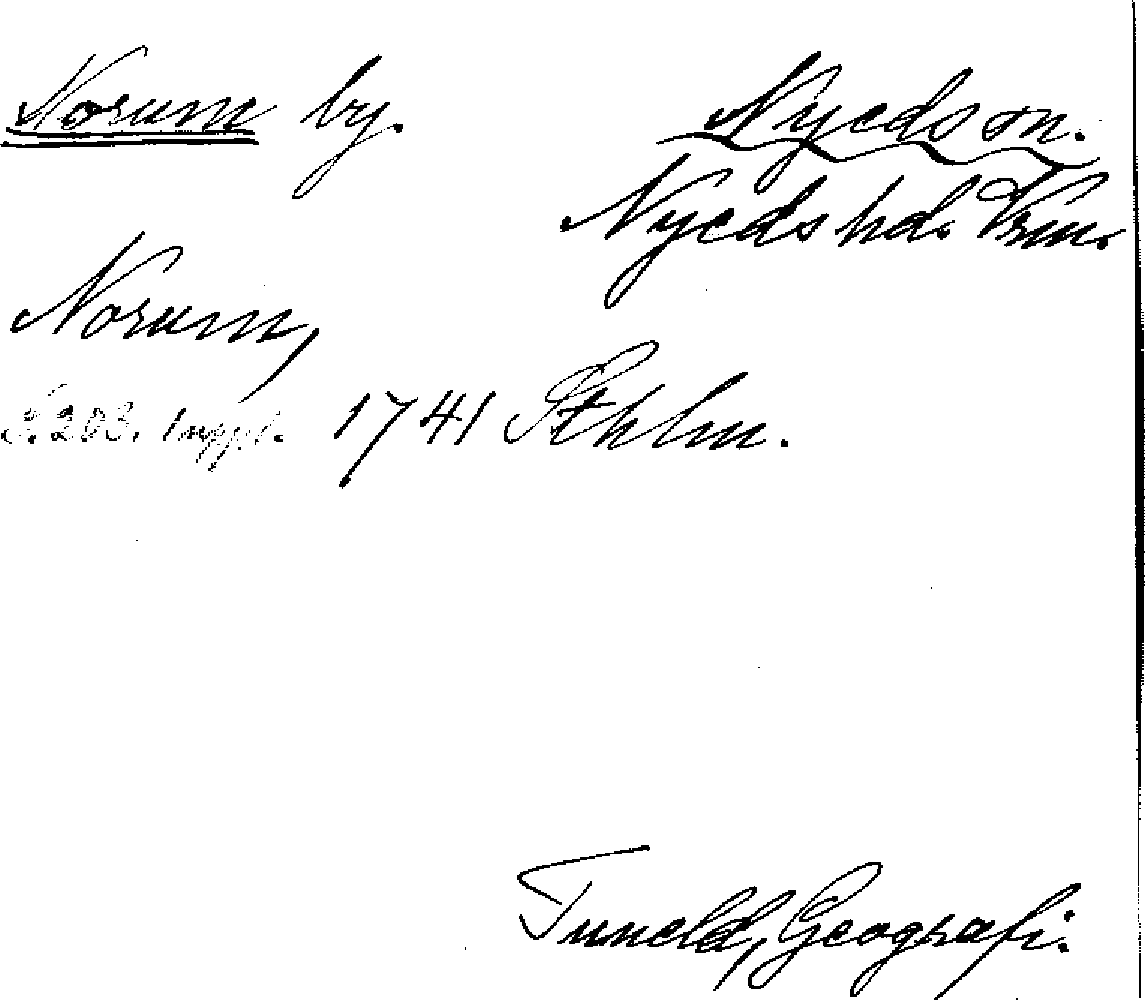 Norum by.
Nyeds sn.
Nyeds hd. Vrm.
Norum,
S. 203. 1 uppl. 1741 Sthlm.
Tuneld, Geografi.